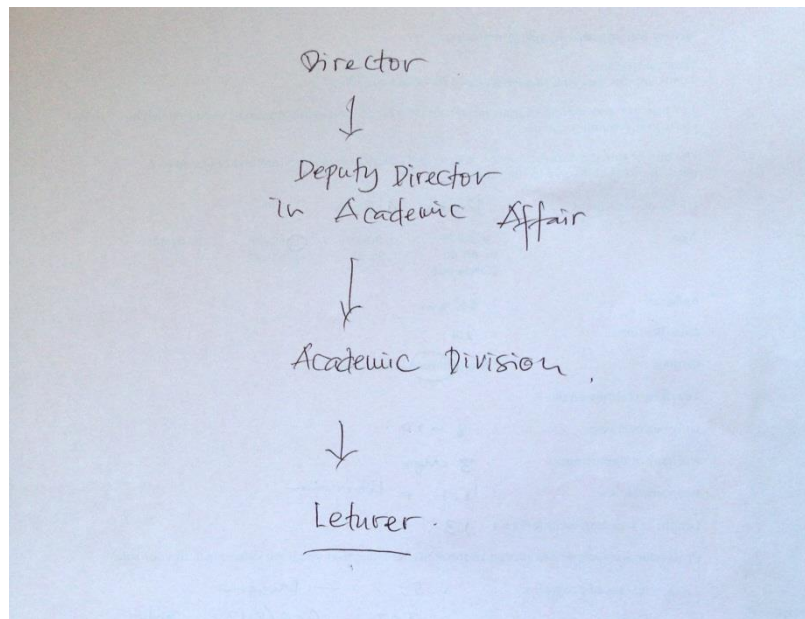 Director
Deputy Director
in Academic Affair
Academic Division.
Leturer.